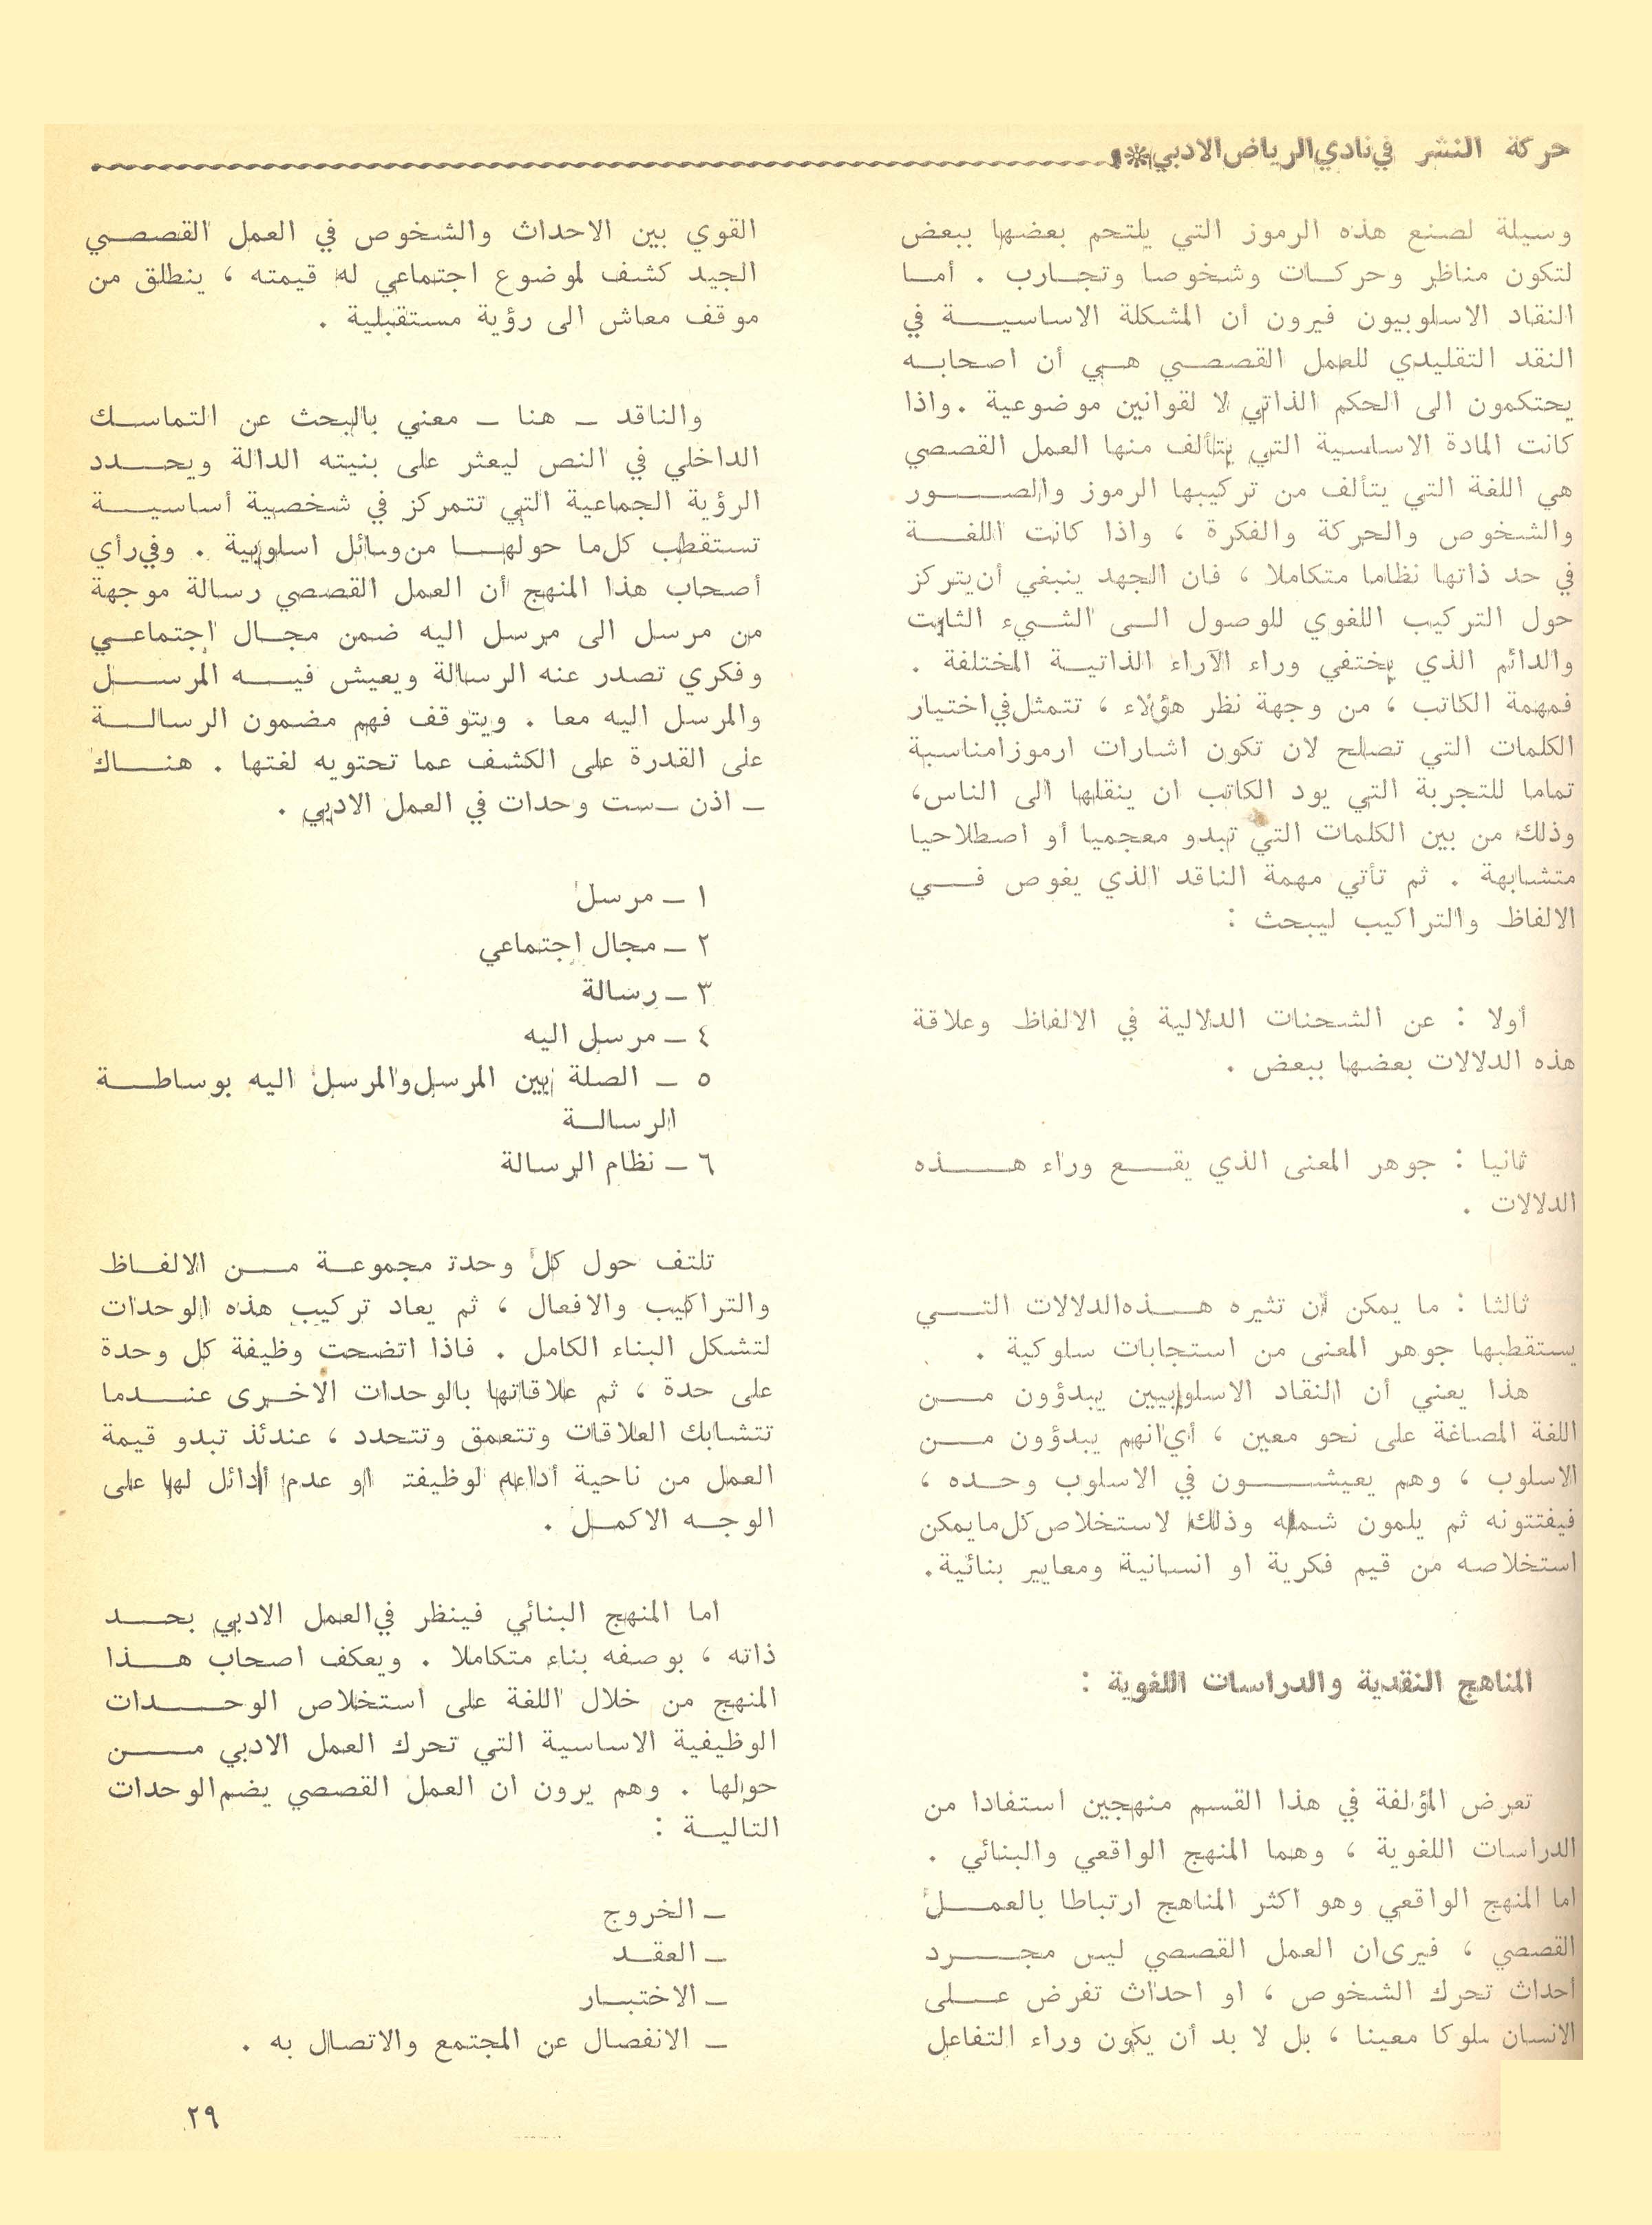 حركة النشر في نادي الرياض الادبي
وسيلة لصنع هذه الرموز التي يلتحم بعضها ببعض
لتكون مناظر وحركات وشخوصا وتجارب . أما
النقاد الاسلوبيون فيرون أن المشكلة الاساسية في
النقد التقليدي للعمل القصصي هي أن اصحابه
يحتكمون الى الحكم الذاتي لا لقوانين موضوعية . واذا
كانت المادة الاساسية التي يتألف منها العمل القصصي
هي اللغة التي يتألف من تركيبها الرموز والصور
والشخوص والحركة والفكرة ، واذا كانت اللغة
في حد ذاتها نظاما متكاملا ، فان الجهد ينبغي أن يتركز
حول التركيب اللغوي للوصول الى الشيء الثابت
والدائم الذي يختفي وراء الآراء الذاتية المختلفة .
فمهمة الكاتب ، من وجهة نظر هؤلاء ، تتمثل في اختيار
الكلمات التي تصلح لان تكون اشارات ارموزا مناسبة
تماما للتجربة التي يود الكاتب ان ينقلها الى الناس ،
وذلك من بين الكلمات التي تبدو معجميا أو اصطلاحيا
متشابهة . ثم تأتي مهمة الناقد الذي يغوص في
الالفاظ والتراكيب ليبحث :
أولا : عن الشحنات الدلالية في الالفاظ وعلاقة
هذه الدلالات بعضها ببعض .
ثانيا : جوهر المعنى الذي يقع وراء هذه
الدلالات .
ثالثا : ما يمكن أن تثيره هذه الدلالات التي
يستقطبها جوهر المعنى من استجابات سلوكية .
هذا يعني أن النقاد الاسلوبيين يبدؤون من
اللغة المصاغة على نحو معين ، أي انهم يبدؤون من
الاسلوب ، وهم يعيشون في الاسلوب وحده ،
فيفتتونه ثم يلمون شمله وذلك لاستخلاص كل ما يمكن
استخلاصه من قيم فكرية او انسانية ومعايير بنائية .
المناهج النقدية والدراسات اللغوية :
تعرض المؤلفة في هذا القسم منهجين استفادا من
الدراسات اللغوية ، وهما المنهج الواقعي والبنائي .
اما المنهج الواقعي وهو اكثر المناهج ارتباطا بالعمل
القصصي ، فيرى ان العمل القصصي ليس مجرد
احداث تحرك الشخوص ، او احداث تفرض على
الانسان سلوكا معينا ، بل لا بد أن يكون وراء التفاعل
القوي بين الاحداث والشخوص في العمل القصصي
الجيد كشف لموضوع اجتماعي له قيمته ، ينطلق من
موقف معاش الى رؤية مستقبلية .
والناقد – هنا – معني بالبحث عن التماسك
الداخلي في النص ليعثر على بنيته الدالة ويحدد
الرؤية الجماعية التي تتمركز في شخصية أساسية
تستقطب كل ما حولها من وسائل اسلوبية . وفي رأي
أصحاب هذا المنهج أن العمل القصصي رسالة موجهة
من مرسل الى مرسل اليه ضمن مجال اجتماعي
وفكري تصدر عنه الرسالة ويعيش فيه المرسل
والمرسل اليه معا . ويتوقف فهم مضمون الرسالة
على القدرة على الكشف عما تحتويه لغتها . هناك
– اذن – ست وحدات في العمل الادبي .
١ – مرسل
٢ – مجال اجتماعي
٣ – رسالة
٤ – مرسل اليه
٥ – الصلة بين المرسل والمرسل اليه بوساطة
الرسالة
٦ – نظام الرسالة
تلتف حول كل وحدة مجموعة من الالفاظ
والتراكيب والافعال ، ثم يعاد تركيب هذه الوحدات
لتشكل البناء الكامل . فاذا اتضحت وظيفة كل وحدة
على حدة ، ثم علاقاتها بالوحدات الاخرى عندما
تتشابك العلاقات وتتعمق وتتحدد ، عندئذ تبدو قيمة
العمل من ناحية أدائه لوظيفته او عدم أدائه لها على
الوجه الاكمل .
اما المنهج البنائي فينظر في العمل الادبي بحد
ذاته ، بوصفه بناء متكاملا . ويعكف اصحاب هذا
المنهج من خلال اللغة على استخلاص الوحدات
الوظيفية الاساسية التي تحرك العمل الادبي من
حولها . وهم يرون ان العمل القصصي يضم الوحدات
التالية :
– الخروج
– العقد
– الاختبار
– الانفصال عن المجتمع والاتصال به .
٢٩